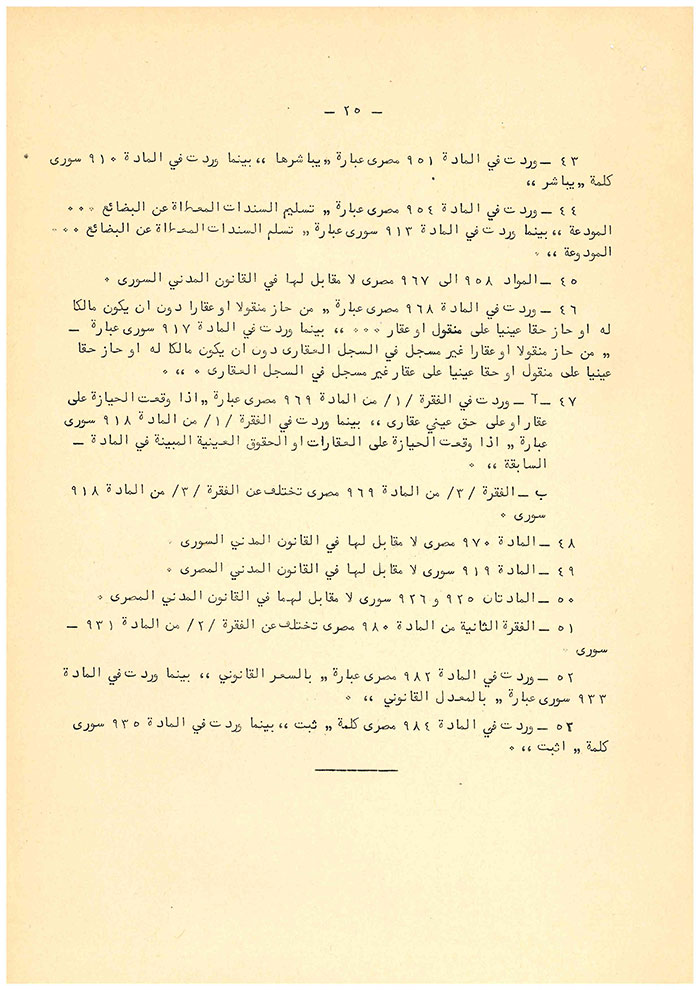 — ٢٥ —
٤٣ ــ وردت في المادة ٩٥١ مصرى عبارة „ يباشرها ،، بينما وردت في المادة ٩١٠ سورى
كلمة „ يباشر ،،
٤٤ ــ وردت في المادة ٩٥٤ مصرى عبارة „ تسليم السندات المعطاة عن البضائع ٠٠٠
المودعة ،، بينما وردت في المادة ٩١٣ سورى عبارة „ تسلم السندات المعطاة عن البضائع ٠٠٠
المودوعة ،، ٠
٤٥ ــ المواد ٩٥٨ الى ٩٦٧ مصرى لا مقابل لها في القانون المدني السورى ٠
٤٦ ــ وردت في المادة ٩٦٨ مصرى عبارة „ من حاز منقولا او عقارا دون ان يكون مالكا
له او حاز حقا عينيا على منقول او عقار ٠٠٠ ،، بينما وردت في المادة ٩١٧ سورى عبارة ــ
„ من حاز منقولا او عقارا غير مسجل في السجل العقارى دون ان يكون مالكا له او حاز حقا
عينيا على منقول او حقا عينيا على عقار غير مسجل في السجل العقارى ٠ ،، ٠
٤٧ ــ آ ــ وردت في الفقرة /١/ من المادة ٩٦٩ مصرى عبارة „ اذا وقعت الحيازة على
عقار او على حق عيني عقارى ،، بينما وردت في الفقرة /١/ من المادة ٩١٨ سورى
عبارة „ اذا وقعت الحيازة على العقارات او الحقوق العينية المبينة في المادة ــ
السابقة ،، ٠
ب ــ الفقرة /٣/ من المادة ٩٦٩ مصرى تختلف عن الفقرة /٣/ من المادة ٩١٨
سورى ٠
٤٨ ــ المادة ٩٧٠ مصرى لا مقابل لها في القانون المدني السورى ٠
٤٩ ــ المادة ٩١٩ سورى لا مقابل لها في القانون المدني المصرى ٠
٥٠ ــ المادتان ٩٢٥ و ٩٢٦ سورى لا مقابل لهما في القانون المدني المصرى ٠
٥١ ــ الفقرة الثانية من المادة ٩٨٠ مصرى تختلف عن الفقرة /٢/ من المادة ٩٣١ ــ
سورى ٠
٥٢ ــ وردت في المادة ٩٨٢ مصرى عبارة „ بالسعر القانوني ،، بينما وردت في المادة
٩٣٣ سورى عبارة „ بالمعدل القانوني ،، ٠
٥٣ ــ وردت في المادة ٩٨٤ مصرى كلمة „ ثبت ،، بينما وردت في المادة ٩٣٥ سورى
كلمة „ اثبت ،، ٠